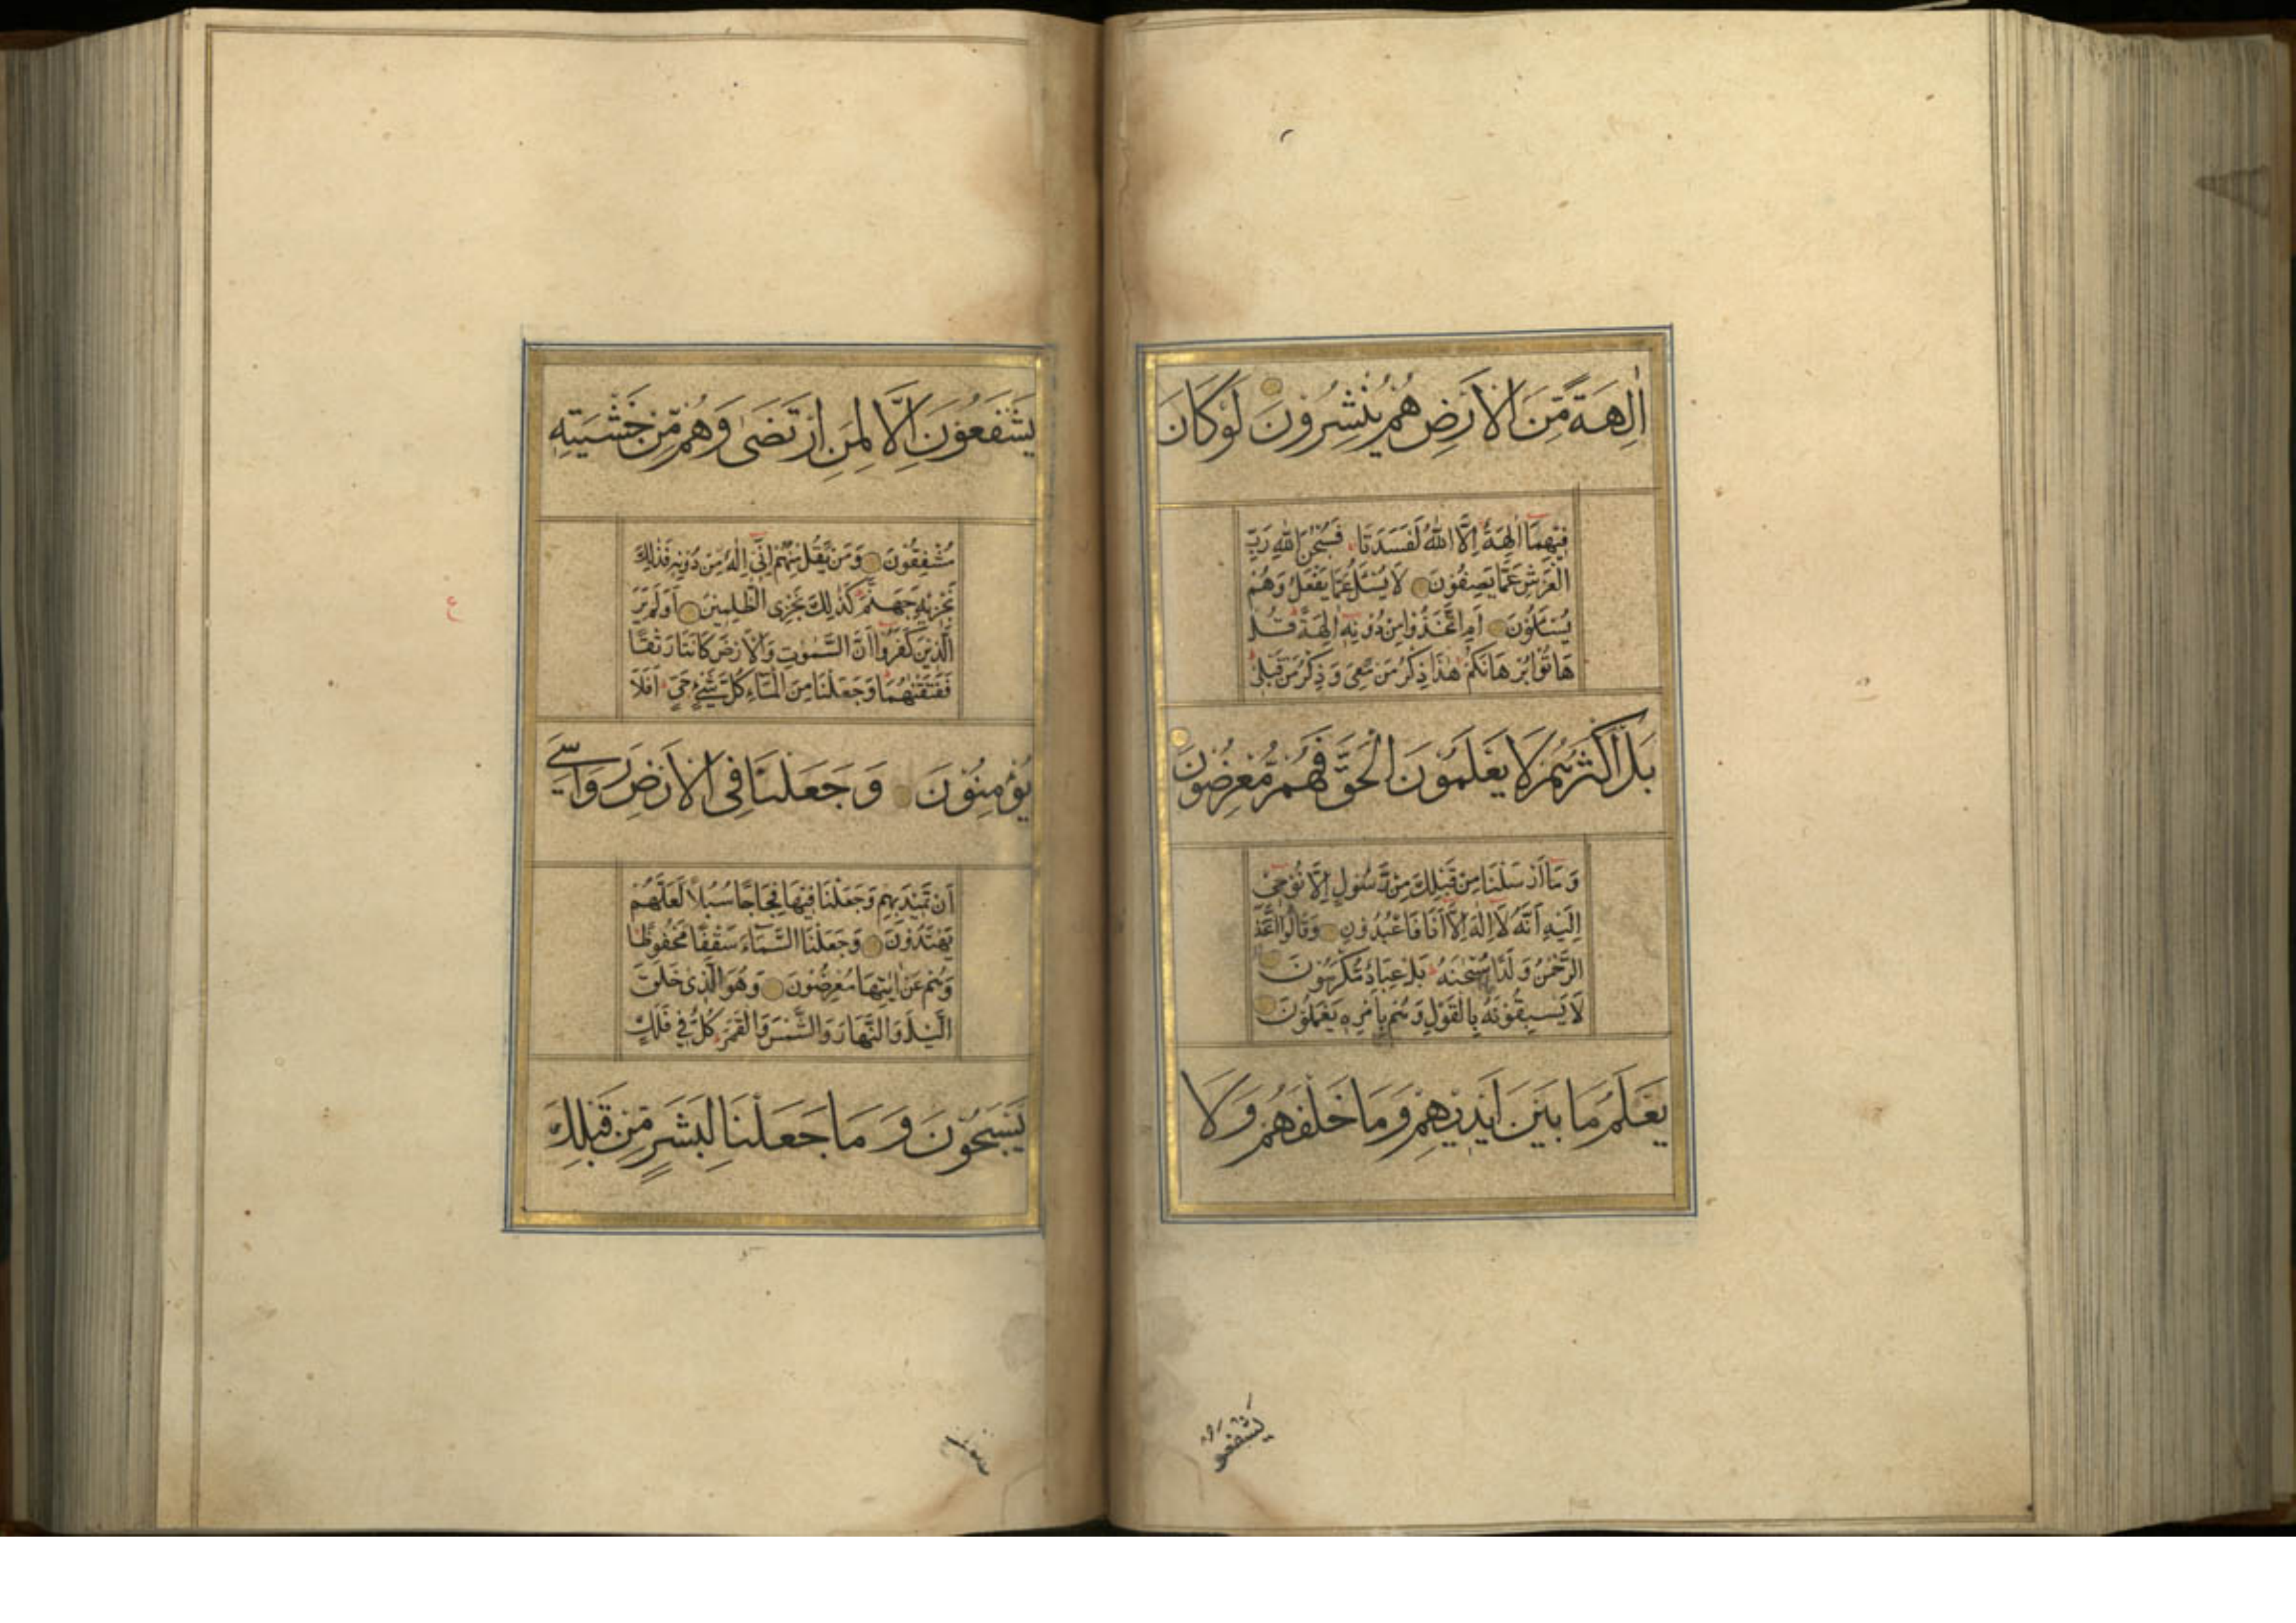 اٰلِهَةً مِّنَ الْاَرْضِ هُمْ يُنْشِرُوْنَ لَوْ كَانَ
فِيْهِمَا اٰلِهَةٌ اِلَّا اللّٰهُ لَفَسَدَتَا فَسُبْحٰنَ اللّٰهِ رَبِّ
الْعَرْشِ عَمَّا يَصِفُوْنَ لَا يُسْئَلُ عَمَّا يَفْعَلُ وَهُمْ
يُسْئَلُوْنَ اَمِ اتَّخَذُوْا مِنْ دُوْنِهٖ اٰلِهَةً قُلْ
هَاتُوْا بُرْهَانَكُمْ هٰذَا ذِكْرُ مَنْ مَّعِيَ وَذِكْرُ مَنْ قَبْلِيْ
بَلْ اَكْثَرُهُمْ لَا يَعْلَمُوْنَ الْحَقَّ فَهُمْ مُّعْرِضُوْنَ
وَمَا اَرْسَلْنَا مِنْ قَبْلِكَ مِنْ رَّسُوْلٍ اِلَّا نُوْحِيْ
اِلَيْهِ اَنَّهٗ لَا اِلٰهَ اِلَّا اَنَا فَاعْبُدُوْنِ وَقَالُوا اتَّخَذَ
الرَّحْمٰنُ وَلَدًا سُبْحٰنَهٗ بَلْ عِبَادٌ مُّكْرَمُوْنَ
لَا يَسْبِقُوْنَهٗ بِالْقَوْلِ وَهُمْ بِاَمْرِهٖ يَعْمَلُوْنَ
يَعْلَمُ مَا بَيْنَ اَيْدِيْهِمْ وَمَا خَلْفَهُمْ وَلَا
يشفعو
يَشْفَعُوْنَ اِلَّا لِمَنِ ارْتَضٰى وَهُمْ مِّنْ خَشْيَتِهٖ
مُشْفِقُوْنَ وَمَنْ يَّقُلْ مِنْهُمْ اِنِّيْ اِلٰهٌ مِّنْ دُوْنِهٖ فَذٰلِكَ
نَجْزِيْهِ جَهَنَّمَ كَذٰلِكَ نَجْزِي الظّٰلِمِيْنَ اَوَلَمْ يَرَ
الَّذِيْنَ كَفَرُوْا اَنَّ السَّمٰوٰتِ وَالْاَرْضَ كَانَتَا رَتْقًا
فَفَتَقْنٰهُمَا وَجَعَلْنَا مِنَ الْمَاءِ كُلَّ شَيْءٍ حَيٍّ اَفَلَا
يُؤْمِنُوْنَ وَجَعَلْنَا فِي الْاَرْضِ رَوَاسِيَ
اَنْ تَمِيْدَ بِهِمْ وَجَعَلْنَا فِيْهَا فِجَاجًا سُبُلًا لَّعَلَّهُمْ
يَهْتَدُوْنَ وَجَعَلْنَا السَّمَاءَ سَقْفًا مَّحْفُوْظًا
وَهُمْ عَنْ اٰيٰتِهَا مُعْرِضُوْنَ وَهُوَ الَّذِيْ خَلَقَ
الَّيْلَ وَالنَّهَارَ وَالشَّمْسَ وَالْقَمَرَ كُلٌّ فِيْ فَلَكٍ
يَّسْبَحُوْنَ وَمَا جَعَلْنَا لِبَشَرٍ مِّنْ قَبْلِكَ
ع